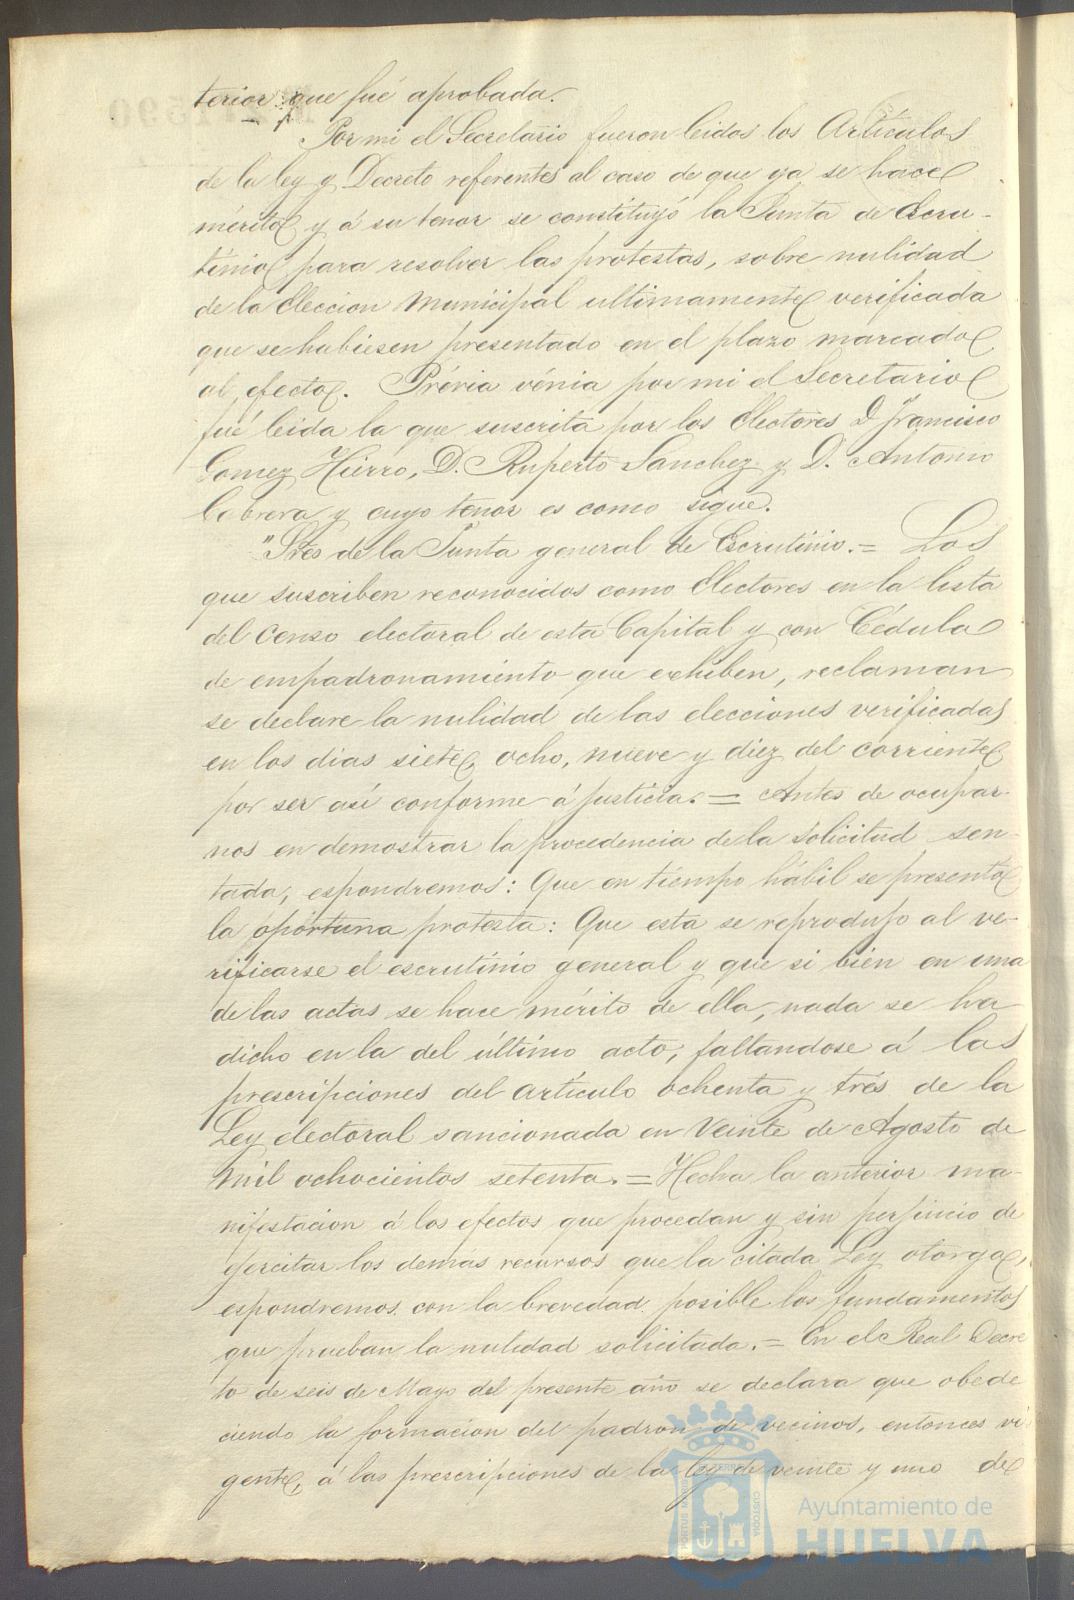 terior que fué aprobada.
Por mi el Secretario fueron leidos los Artículos
de la ley y Decreto referentes al caso de que ya se hace
mérito y á su tenor se constituyó la Junta de Escru-
tinio para resolver las protestas, sobre nulidad
de la Eleccion Municipal ultimamente verificada
que se habiesen presentado en el plazo marcado
al efecto. Prévia vénia por mi el Secretario
fué leida la que suscrita por los Electores D. Francisco
Gomez Hierro, D. Ruperto Sanchez y D. Antonio
Cabrera y cuyo tenor es como sigue.
"Sres de la Junta general de Escrutinio.= Los
que suscriben reconocidos como Electores en la lista
del Censo electoral de esta Capital y con Cédula
de empadronamiento que exhiben, reclaman
se declare la nulidad de las elecciones verificadas
en los dias siete, ocho, nueve y diez del corriente
por ser así conforme á justicia.= Antes de ocupar-
nos en demostrar la procedencia de la solicitud sen-
tada, espondremos: Que en tiempo hábil se presentó
la oportuna protesta: Que esta se reprodujo al ve-
rificarse el escrutinio general y que si bien en una
de las actas se hace mérito de ella, nada se ha
dicho en la del último acto, faltandose á las
prescripciones del artículo ochenta y trés de la
Ley electoral sancionada en Veinte de Agosto de
mil ochocientos setenta.= Hecha la anterior ma-
nifestacion á los efectos que procedan y sin perjuicio de
ejercitar los demás recursos que la citada Ley otorga,
espondremos con la brevedad posible los fundamentos
que prueban la nulidad solicitada.= En el Real Decre
to de seis de Mayo del presente año se declara que obede
ciendo la formacion del padron de vecinos, entonces vi
gente, á las prescripciones de la ley de veinte y uno de
Ayuntamiento de
HUELVA